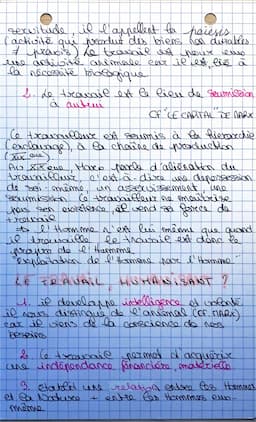 servitude, il l'appellent la poïesis
(activité qui produit des biens non durables
≠ praxis) Le travail est perçu comme
une activité animale car il est lié à
la nécessité biologique
2. Le travail est le lieu de soumission
à autrui
CF "LE CAPITAL" DE MARX
Ce travailleur est soumis à la hiérarchie
(esclavage), à la chaîne de production
(XXème)
Au XIXème, Marx parle d'aliénation du
travailleur, c'est à dire une dépossession
de soi-même, un asservissement, une
soumission. Ce travailleur ne maîtrise
pas son existence, et vend sa force de
travail
→ l'Homme n'est lui même que quand
il travaille, le travail est donc le
propre de l'Homme
"exploitation de l'Homme par l'Homme"
LE TRAVAIL, HUMANISANT ?
1. il développe intelligence et volonté
il nous distingue de l'animal (CF MARX)
car il vient de la conscience de nos
besoins
2. Ce travail permet d'acquérir
une indépendance financière, matérielle
3. établit une relation entre les Hommes
et la Nature + entre les Hommes eux-
même